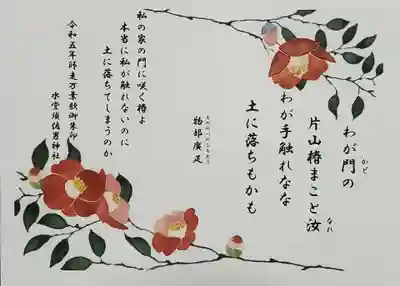 わが門の
かど
片山椿まこと汝
なれ
わが手触れなな
土に落ちもかも
物部廣足
私の家の門に咲く椿よ
本当に私が触れないのに
土に落ちてしまうのか
令和五年師走万葉歌御朱印
水堂須佐男神社